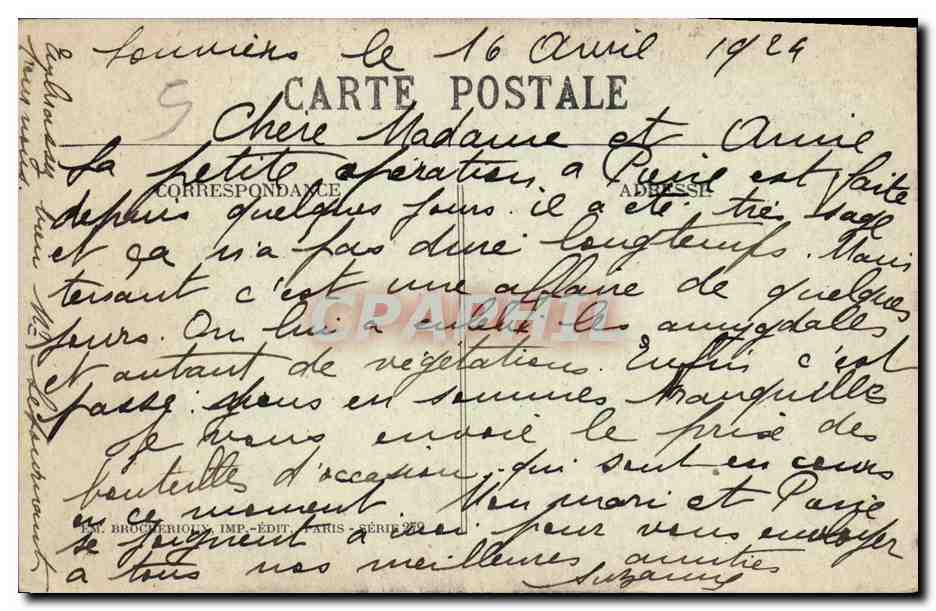 Louviers le 16 Avril 1924
CARTE POSTALE
5
Chère Madame et Amie
La petite opération a Pierre est faite
CORRESPONDANCE ADRESSE
depuis quelques jours. il a été très sage
et ça n'a pas duré longtemps. Main
tenant c'est une affaire de quelques
CPAPHIL
jours. On lui a enlevé les amygdales
et autant de végétations. Enfin c'est
passé. Nous en sommes tranquilles
Je vous envoie le prix des
bouteilles d'occasion, qui sont en cours
en ce moment. Mon mari et Pierre
EM. BROCHERIOUX, IMP.-ÉDIT. PARIS - SÉRIE 259
se joignent à moi pour vous envoyer
a tous nos meilleures amitiés
Suzanne
Embrassez bien Mme
pour nous.